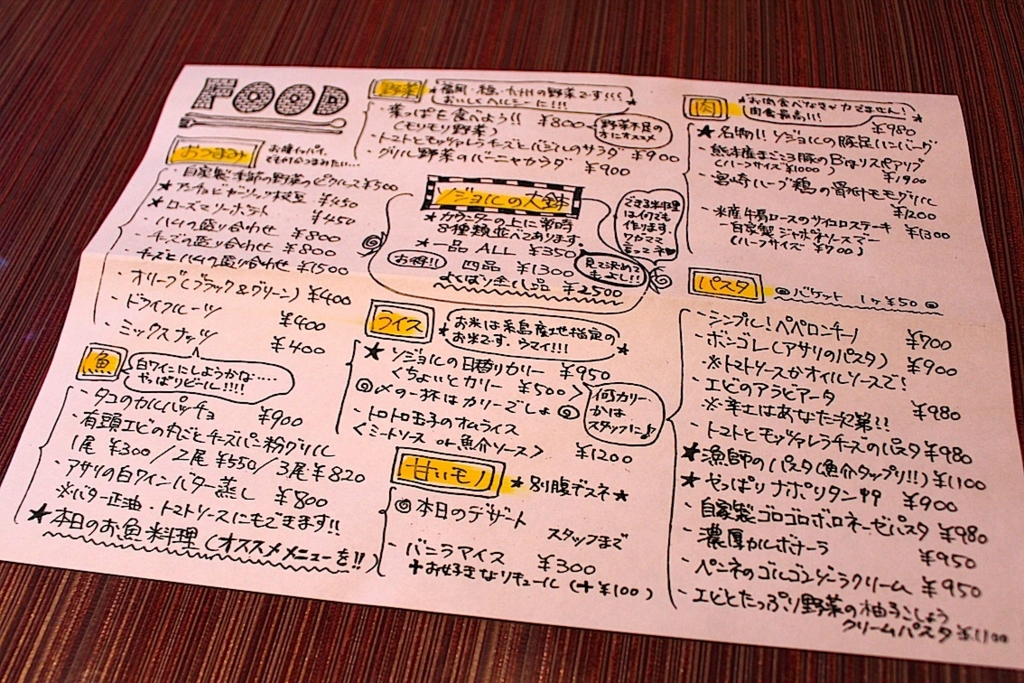 FOOD
おつまみ
お腹イッパイ、
でも何かつまみたい…
・自家製 季節の野菜のピクルス ¥500
★アンチョビガーリック枝豆 ¥450
★ローズマリーポテト ¥450
・ハムの盛り合わせ ¥800
・チーズの盛り合わせ ¥800
・チーズとハムの盛り合わせ ¥1500
・オリーブ(ブラック&グリーン) ¥400
・ドライフルーツ ¥400
・ミックスナッツ ¥400
魚
白ワインにしようかな‥‥
やっぱりビール!!!!
・タコのカルパッチョ ¥900
・有頭エビの丸ごとチーズパン粉グリル
1尾 ¥300/2尾 ¥550/3尾 ¥820
・アサリの白ワインバター蒸し ¥800
※バター正油・トマトソースにもできます!!
★本日のお魚料理(オススメメニューを!!)
野菜
福岡・糸島・九州の野菜です!!!
おいしくヘルシーに!!!
・葉っぱを食べよう!! ¥800
(モリモリ野菜)
野菜不足の
方にオススメ
・トマトとモッツァレラチーズとバジルのサラダ ¥900
・グリル野菜のバーニャカウダ ¥900
ソジョルの人鉢
★カウンターの上に常時
8種類並べてあります。
★一品 ALL ¥350
お得!!
四品 ¥1300
よくばり全八品 ¥2500
できる料理
は何でも
作ります。
ワガママ
見て決めて
もよし!!
ライス
お米は糸島産地指定の
お米です。ウマイ!!!
★ソジョルの日替りカリー ¥950
くちょいとカリー ¥500
◎〆の一杯はカリーでしょ◎
何カリー
かは
スタッフに♪
・トロトロ玉子のオムライス
<ミートソース or 魚介ソース> ¥1200
甘いモノ
★別腹デスネ★
◎本日のデザート
スタッフまで
・バニラアイス ¥300
+お好きなリキュール(+¥100)
肉
お肉食べなきゃ力でません!
肉食最高!!!
★名物!! ソジョルの豚足ハンバーグ ¥980
・熊本産まごころ豚のBIGリスペアリブ
(ハーフサイズ ¥1000) ¥1900
・宮崎ハーブ鶏の骨付モモグリル
¥1200
・米産牛肩ロースのサイコロステーキ ¥1300
-自家製ジャポネソース-
(ハーフサイズ ¥700)
パスタ
◎バケット 1ヶ¥50◎
・シンプル!ペペロンチーノ ¥700
・ボンゴレ(アサリのパスタ) ¥900
※トマトソースかオイルソースで!
・エビのアラビアータ ¥980
※辛士はあなた次第!!
・トマトとモッツァレラチーズのパスタ ¥980
★漁師のパスタ(魚介タップリ!!) ¥1100
★やっぱりナポリタン ¥900
・自家製ゴロゴロボロネーゼパスタ ¥980
・濃厚カルボナーラ ¥950
・ペンネのゴルゴンゾーラクリーム ¥950
・エビとたっぷり野菜の柚子こしょう
クリームパスタ ¥1100